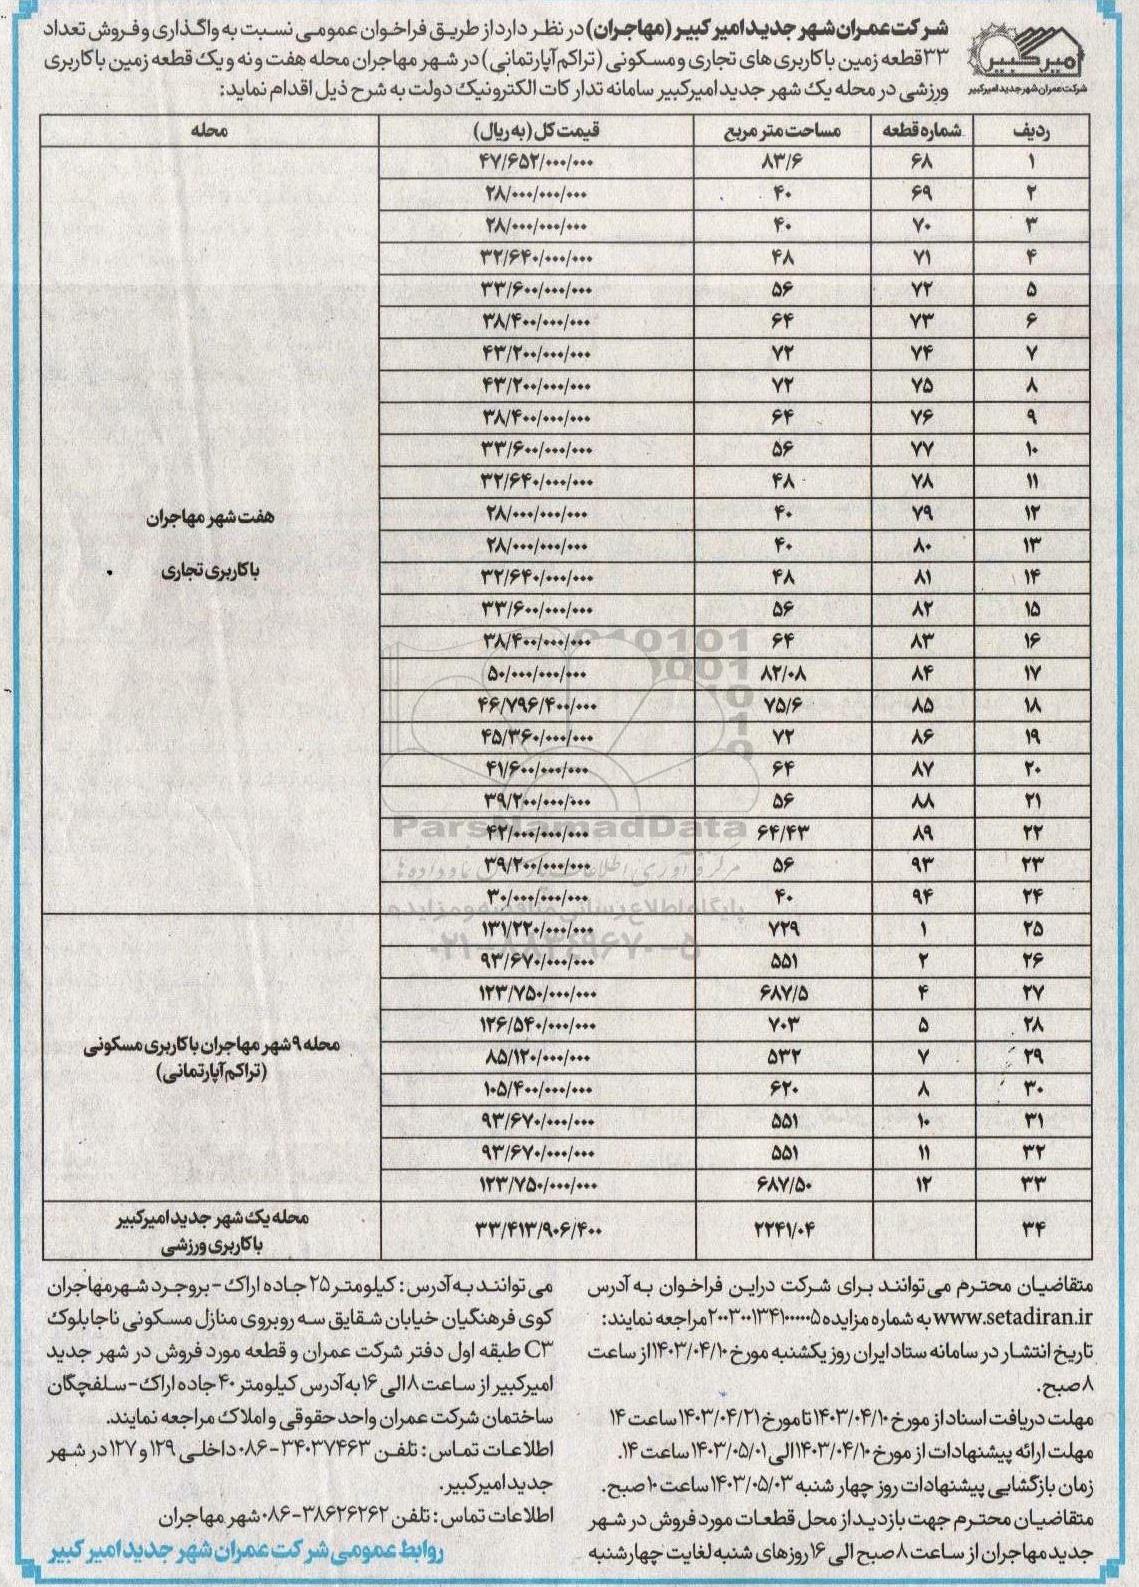 امیرکبیر
شرکت عمران شهر جدید امیرکبیر
شرکت عمران شهر جدید امیر کبیر (مهاجران) در نظر دارد از طریق فراخوان عمومی نسبت به واگذاری و فروش تعداد
۳۳ قطعه زمین با کاربری های تجاری و مسکونی (تراکم آپارتمانی) در شهر مهاجران محله هفت و نه و یک قطعه زمین با کاربری
ورزشی در محله یک شهر جدید امیرکبیر سامانه تدارکات الکترونیک دولت به شرح ذیل اقدام نماید:
ردیف شماره قطعه مساحت متر مربع قیمت کل (به ریال) محله
۱ ۶۸ ۸۳/۶ ۴۷/۶۵۲/۰۰۰/۰۰۰
۲ ۶۹ ۴۰ ۲۸/۰۰۰/۰۰۰/۰۰۰
۳ ۷۰ ۴۰ ۲۸/۰۰۰/۰۰۰/۰۰۰
۴ ۷۱ ۴۸ ۳۲/۶۴۰/۰۰۰/۰۰۰
۵ ۷۲ ۵۶ ۳۳/۶۰۰/۰۰۰/۰۰۰
۶ ۷۳ ۶۴ ۳۸/۴۰۰/۰۰۰/۰۰۰
۷ ۷۴ ۷۲ ۴۳/۲۰۰/۰۰۰/۰۰۰
۸ ۷۵ ۷۲ ۴۳/۲۰۰/۰۰۰/۰۰۰
۹ ۷۶ ۶۴ ۳۸/۴۰۰/۰۰۰/۰۰۰
۱۰ ۷۷ ۵۶ ۳۳/۶۰۰/۰۰۰/۰۰۰
۱۱ ۷۸ ۴۸ ۳۲/۶۴۰/۰۰۰/۰۰۰
۱۲ ۷۹ ۴۰ ۲۸/۰۰۰/۰۰۰/۰۰۰ هفت شهر مهاجران
۱۳ ۸۰ ۴۰ ۲۸/۰۰۰/۰۰۰/۰۰۰
۱۴ ۸۱ ۴۸ ۳۲/۶۴۰/۰۰۰/۰۰۰ با کاربری تجاری
۱۵ ۸۲ ۵۶ ۳۳/۶۰۰/۰۰۰/۰۰۰
۱۶ ۸۳ ۶۴ ۳۸/۴۰۰/۰۰۰/۰۰۰
۱۷ ۸۴ ۸۲/۰۸ ۵۰/۰۰۰/۰۰۰/۰۰۰
۱۸ ۸۵ ۷۵/۶ ۴۶/۷۹۶/۴۰۰/۰۰۰
۱۹ ۸۶ ۷۲ ۴۵/۳۶۰/۰۰۰/۰۰۰
۲۰ ۸۷ ۶۴ ۴۱/۶۰۰/۰۰۰/۰۰۰
۲۱ ۸۸ ۵۶ ۳۹/۲۰۰/۰۰۰/۰۰۰
۲۲ ۸۹ ۶۴/۴۳ ۴۲/۰۰۰/۰۰۰/۰۰۰
۲۳ ۹۳ ۵۶ ۳۹/۲۰۰/۰۰۰/۰۰۰
۲۴ ۹۴ ۴۰ ۳۰/۰۰۰/۰۰۰/۰۰۰
۲۵ ۱ ۷۲۹ ۱۳۱/۲۲۰/۰۰۰/۰۰۰
۲۶ ۲ ۵۵۱ ۹۳/۶۷۰/۰۰۰/۰۰۰
۲۷ ۴ ۶۸۷/۵ ۱۲۳/۷۵۰/۰۰۰/۰۰۰
۲۸ ۵ ۷۰۳ ۱۲۶/۵۴۰/۰۰۰/۰۰۰
محله ۹ شهر مهاجران با کاربری مسکونی
۲۹ ۷ ۵۳۲ ۸۵/۱۲۰/۰۰۰/۰۰۰
(تراکم آپارتمانی)
۳۰ ۸ ۶۲۰ ۱۰۵/۴۰۰/۰۰۰/۰۰۰
۳۱ ۱۰ ۵۵۱ ۹۳/۶۷۰/۰۰۰/۰۰۰
۳۲ ۱۱ ۵۵۱ ۹۳/۶۷۰/۰۰۰/۰۰۰
۳۳ ۱۲ ۶۸۷/۵۰ ۱۲۳/۷۵۰/۰۰۰/۰۰۰
۳۴ ۲۲۴۱/۰۴ ۳۳/۴۱۳/۹۰۶/۴۰۰ محله یک شهر جدید امیرکبیر
با کاربری ورزشی
ParsNamadData
پایگاه اطلاع رسانی مناقصه و مزایده
۰۲۱-۸۸۳۴۹۶۷۰-۵
متقاضیان محترم می توانند برای شرکت در این فراخوان به آدرس
www.setadiran.ir به شماره مزایده ۲۰۰۳۰۰۱۳۴۱۰۰۰۰۰۵ مراجعه نمایند:
تاریخ انتشار در سامانه ستاد ایران روز یکشنبه مورخ ۱۴۰۳/۰۴/۱۰ از ساعت
۸ صبح.
مهلت دریافت اسناد از مورخ ۱۴۰۳/۰۴/۱۰ تا مورخ ۱۴۰۳/۰۴/۲۱ ساعت ۱۴
مهلت ارائه پیشنهادات از مورخ ۱۴۰۳/۰۴/۱۰ الی ۱۴۰۳/۰۵/۰۱ ساعت ۱۴.
زمان بازگشایی پیشنهادات روز چهارشنبه ۱۴۰۳/۰۵/۰۳ ساعت ۱۰ صبح.
متقاضیان محترم جهت بازدید از محل قطعات مورد فروش در شهر
جدید مهاجران از ساعت ۸ صبح الی ۱۶ روزهای شنبه لغایت چهارشنبه
می توانند به آدرس: کیلومتر ۲۵ جاده اراک - بروجرد شهر مهاجران
کوی فرهنگیان خیابان شقایق سه روبروی منازل مسکونی ناجا بلوک
C۳ طبقه اول دفتر شرکت عمران و قطعه مورد فروش در شهر جدید
امیرکبیر از ساعت ۸ الی ۱۶ به آدرس کیلومتر ۴۰ جاده اراک - سلفچگان
ساختمان شرکت عمران واحد حقوقی و املاک مراجعه نمایند.
اطلاعات تماس: تلفن ۳۴۰۳۷۴۶۳-۰۸۶ داخلی ۱۲۹ و ۱۲۷ در شهر
جدید امیرکبیر.
اطلاعات تماس: تلفن ۳۸۶۲۶۲۶۲-۰۸۶ شهر مهاجران
روابط عمومی شرکت عمران شهر جدید امیر کبیر